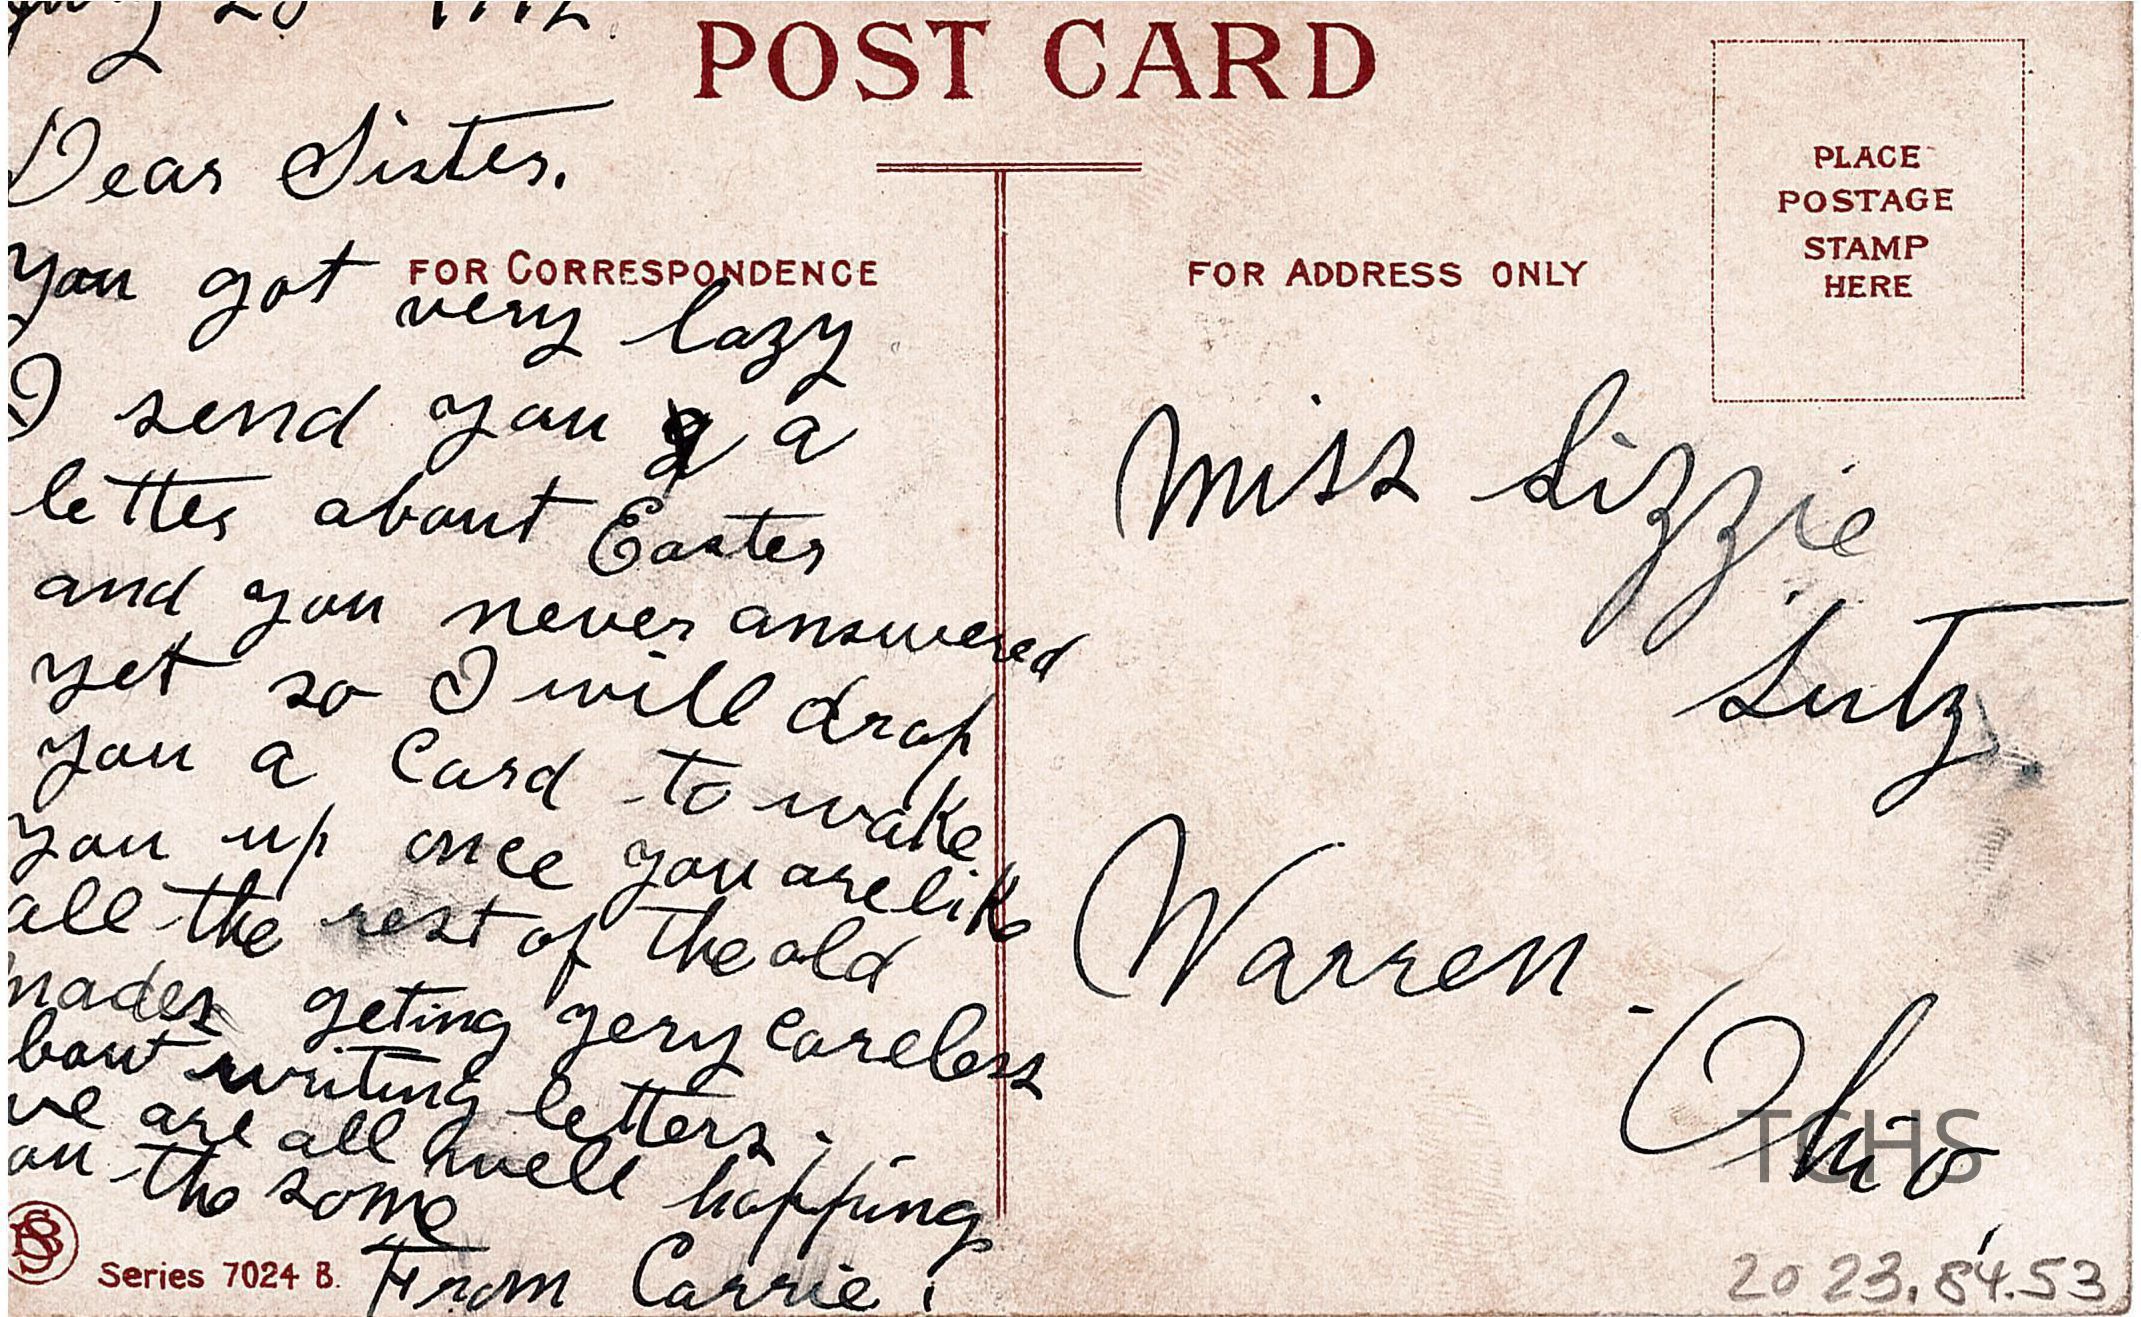 POST CARD
Dear Sister.
You got very lazy
I send you a
letter about Easter
and you never answered
yet so I will drop
you a Card to wake
you up once you are like
all the rest of the old
mades geting very careless
bout writing letters.
we are all well hopping
you the same
From Carrie.
FOR CORRESPONDENCE
Series 7024 B.
FOR ADDRESS ONLY
PLACE
POSTAGE
STAMP
HERE
Miss Lizzie
Lutz.
Warren -
Ohio
TCHS
2023.84.53